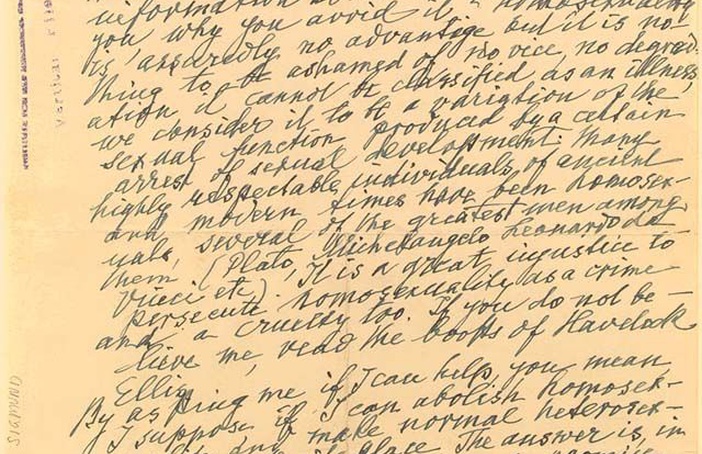 information about him.
you why you avoid it. Homosexuality
is assuredly no advantage but it is no-
thing to be ashamed of, no vice, no degrad-
ation it cannot be classified as an illness;
we consider it to be a variation of the
sexual function produced by a certain
arrest of sexual development. Many
highly respectable individuals of ancient
and modern times have been homosex-
uals, several of the greatest men among
them (Plato, Michelangelo, Leonardo da
Vinci etc). It is a great injustice to
persecute homosexuality as a crime
and a cruelty too. If you do not be-
lieve me, read the books of Havelock
Ellis.
By asking me if I can help, you mean,
I suppose, if I can abolish homosex-
and make normal heterosex-
place. The answer is, in
vertical file